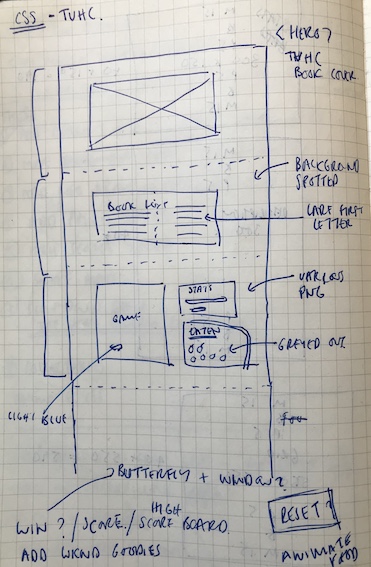 CSS - TVHC.
<HERO>
TVHC
BOOK COVER
BACKGROUND
SPOTTED
BOOK LIST
LARGE FIRST
LETTER
STATS
VARIOUS
PNG
GAME
EATEN
GREYED OUT
LIGHT BLUE
BUTTERFLY + WINDOW?
WIN? / SCORE / HIGH SCORE BOARD
RESET?
ADD WKND GOODIES
ANIMATE